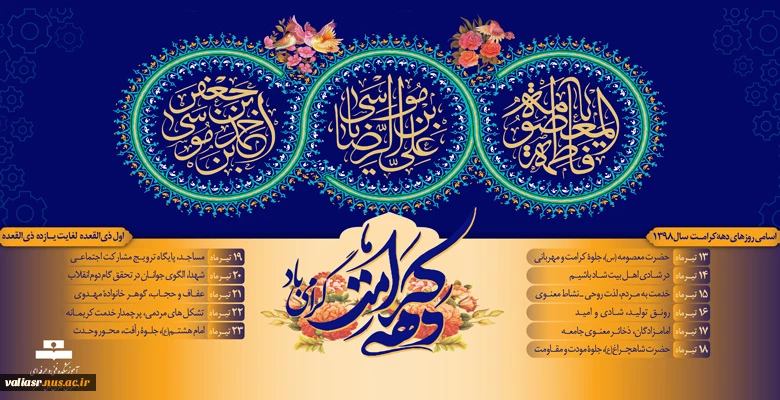 یا فاطمة المعصومة
یا علی بن موسی الرضا
احمد بن موسی بن جعفر
دهه کرامت گرامی باد
اسامی روزهای دهه کرامت سال ۱۳۹۸
اول ذی‌القعده لغایت یازده ذی‌القعده
۱۳ تیرماه حضرت معصومه (س)، جلوهٔ کرامت و مهربانی
۱۴ تیرماه در شادی اهل بیت شاد باشیم
۱۵ تیرماه خدمت به مردم، لذت روحی - نشاط معنوی
۱۶ تیرماه رونق تولید، شادی و امید
۱۷ تیرماه امامزادگان، ذخائر معنوی جامعه
۱۸ تیرماه حضرت شاهچراغ (ع)، جلوهٔ مودت و مقاومت
۱۹ تیرماه مساجد، پایگاه ترویج مشارکت اجتماعی
۲۰ تیرماه شهدا، الگوی جوانان در تحقق گام دوم انقلاب
۲۱ تیرماه عفاف و حجاب، گوهر خانوادهٔ مهدوی
۲۲ تیرماه تشکل های مردمی، پرچمدار خدمت کریمانه
۲۳ تیرماه امام هشتم (ع)، جلوهٔ رأفت، محور وحدت
valiasr.nus.ac.ir